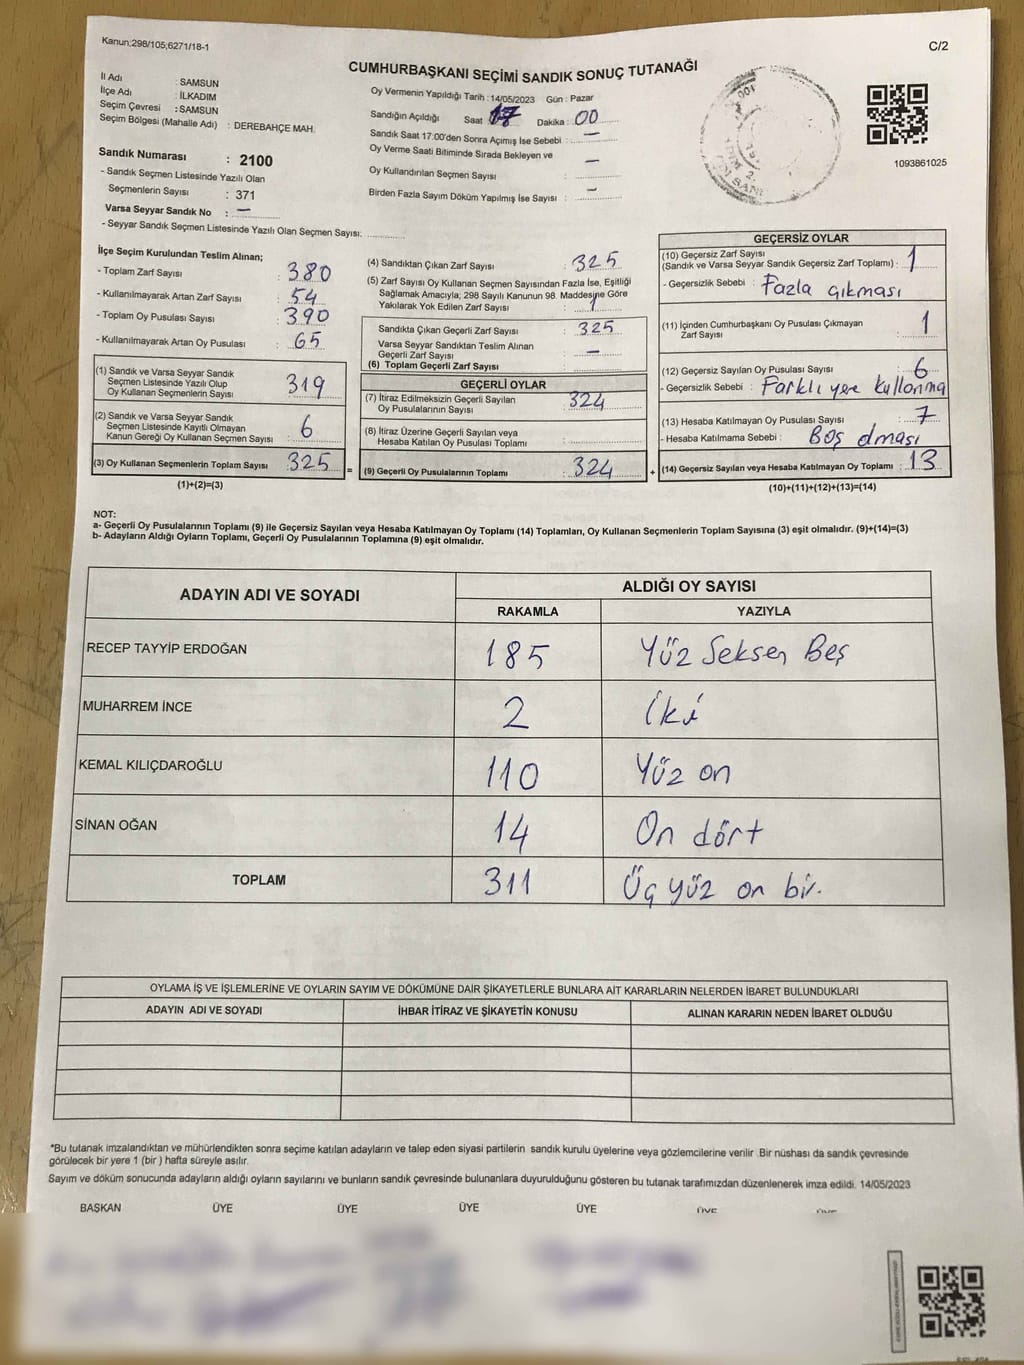 Kanun;298/105;6271/18-1
C/2
CUMHURBAŞKANI SEÇİMİ SANDIK SONUÇ TUTANAĞI
İl Adı : SAMSUN
İlçe Adı : İLKADIM
Seçim Çevresi : SAMSUN
Seçim Bölgesi (Mahalle Adı) : DEREBAHÇE MAH.
Sandık Numarası : 2100
- Sandık Seçmen Listesinde Yazılı Olan
Seçmenlerin Sayısı : 371
Varsa Seyyar Sandık No : —
- Seyyar Sandık Seçmen Listesinde Yazılı Olan Seçmen Sayısı:
Oy Vermenin Yapıldığı Tarih : 14/05/2023 Gün : Pazar
Sandığın Açıldığı Saat 17 Dakika : 00
Sandık Saat 17:00'den Sonra Açımış İse Sebebi : —
Oy Verme Saati Bitiminde Sırada Bekleyen ve
Oy Kullandırılan Seçmen Sayısı : —
Birden Fazla Sayım Döküm Yapılmış İse Sayısı : —
1093861025
İlçe Seçim Kurulundan Teslim Alınan;
- Toplam Zarf Sayısı : 380
- Kullanılmayarak Artan Zarf Sayısı : 54
- Toplam Oy Pusulası Sayısı : 390
- Kullanılmayarak Artan Oy Pusulası : 65
(1) Sandık ve Varsa Seyyar Sandık
Seçmen Listesinde Yazılı Olup
Oy Kullanan Seçmenlerin Sayısı : 319
(2) Sandık ve Varsa Seyyar Sandık
Seçmen Listesinde Kayıtlı Olmayan
Kanun Gereği Oy Kullanan Seçmen Sayısı : 6
(3) Oy Kullanan Seçmenlerin Toplam Sayısı : 325
(1)+(2)=(3)
(4) Sandıktan Çıkan Zarf Sayısı : 325
(5) Zarf Sayısı Oy Kullanan Seçmen Sayısından Fazla İse, Eşitliği
Sağlamak Amacıyla; 298 Sayılı Kanunun 98. Maddesine Göre
Yakılarak Yok Edilen Zarf Sayısı : 1
Sandıkta Çıkan Geçerli Zarf Sayısı : 325
Varsa Seyyar Sandıktan Teslim Alınan
Geçerli Zarf Sayısı : —
(6) Toplam Geçerli Zarf Sayısı :
GEÇERLİ OYLAR
(7) İtiraz Edilmeksizin Geçerli Sayılan
Oy Pusulalarının Sayısı : 324
(8) İtiraz Üzerine Geçerli Sayılan veya
Hesaba Katılan Oy Pusulası Toplamı :
= (9) Geçerli Oy Pusulalarının Toplamı : 324
GEÇERSİZ OYLAR
(10) Geçersiz Zarf Sayısı
(Sandık ve Varsa Seyyar Sandık Geçersiz Zarf Toplamı) : 1
- Geçersizlik Sebebi : Fazla çıkması
(11) İçinden Cumhurbaşkanı Oy Pusulası Çıkmayan
Zarf Sayısı : 1
(12) Geçersiz Sayılan Oy Pusulası Sayısı : 6
- Geçersizlik Sebebi : Farklı yere kullanma
(13) Hesaba Katılmayan Oy Pusulası Sayısı : 7
- Hesaba Katılmama Sebebi : Boş olması
+ (14) Geçersiz Sayılan veya Hesaba Katılmayan Oy Toplamı : 13
(10)+(11)+(12)+(13)=(14)
NOT:
a- Geçerli Oy Pusulalarının Toplamı (9) ile Geçersiz Sayılan veya Hesaba Katılmayan Oy Toplamı (14) Toplamları, Oy Kullanan Seçmenlerin Toplam Sayısına (3) eşit olmalıdır. (9)+(14)=(3)
b- Adayların Aldığı Oyların Toplamı, Geçerli Oy Pusulalarının Toplamına (9) eşit olmalıdır.
ADAYIN ADI VE SOYADI ALDIĞI OY SAYISI
RAKAMLA YAZIYLA
RECEP TAYYİP ERDOĞAN 185 Yüz Seksen Beş
MUHARREM İNCE 2 İki
KEMAL KILIÇDAROĞLU 110 Yüz on
SİNAN OĞAN 14 On dört
TOPLAM 311 Üç yüz on bir.
OYLAMA İŞ VE İŞLEMLERİNE VE OYLARIN SAYIM VE DÖKÜMÜNE DAİR ŞİKAYETLERLE BUNLARA AİT KARARLARIN NELERDEN İBARET BULUNDUKLARI
ADAYIN ADI VE SOYADI İHBAR İTİRAZ VE ŞİKAYETİN KONUSU ALINAN KARARIN NEDEN İBARET OLDUĞU
*Bu tutanak imzalandıktan ve mühürlendikten sonra seçime katılan adayların ve talep eden siyasi partilerin sandık kurulu üyelerine veya gözlemcilerine verilir .Bir nüshası da sandık çevresinde
görülecek bir yere 1 (bir ) hafta süreyle asılır.
Sayım ve döküm sonucunda adayların aldığı oyların sayılarını ve bunların sandık çevresinde bulunanlara duyurulduğunu gösteren bu tutanak tarafımızdan düzenlenerek imza edildi. 14/05/2023
BAŞKAN ÜYE ÜYE ÜYE ÜYE ÜYE ÜYE